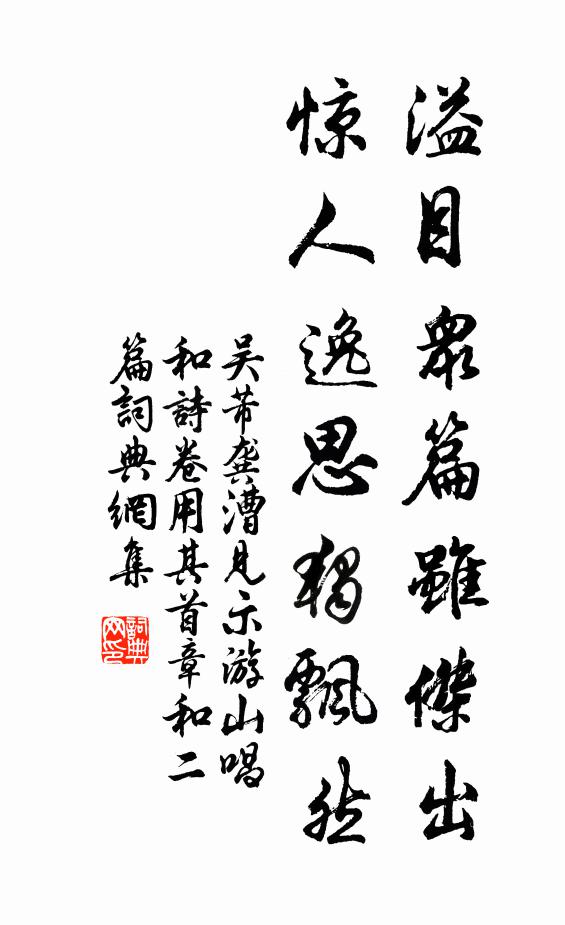 溢目眾篇雖傑出
惊人逸思独飄然
吴芾龚漕見示游山唱
和詩卷用其首章和二
篇詞典網集
詞典网印